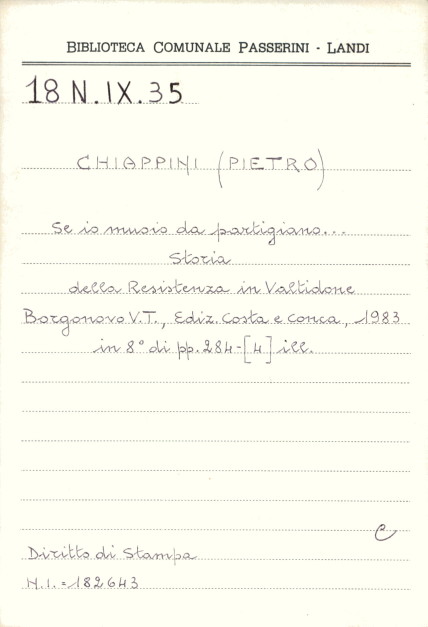 BIBLIOTECA COMUNALE PASSERINI - LANDI
18 N.IX.35
CHIAPPINI (PIETRO)
Se io muoio da partigiano...
Storia
della Resistenza in Valtidone
Borgonovo V.T., Ediz. Costa e Conca, 1983
in 8° di pp. 284-[4] ill.
C
Diritto di Stampa
N.I. = 182643